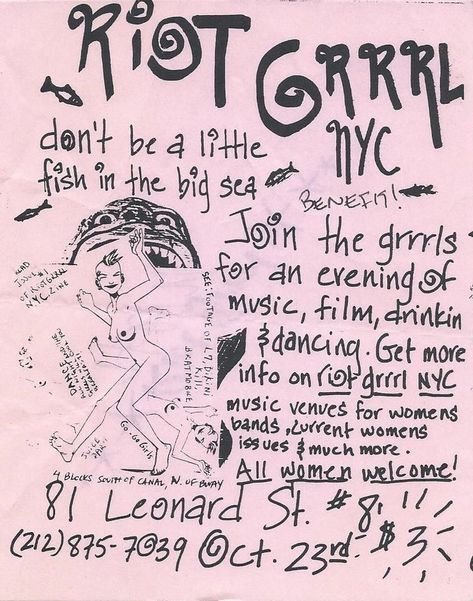 RIOT GRRRL
NYC
don't be a little
fish in the big sea
BENEFIT!
Join the grrrls
for an evening of
music, film, drinkin
& dancing. Get more
info on riot grrrl NYC
music venues for womens
bands, current womens
issues & much more.
All women welcome!
READ
ISSUE #1
OF RIOT GRRRL
NYC ZINE
SEE: FOOTAGE OF L7, BIKINI
KILL,
BRATMOBILE
DANCE
GO-GO GIRLS
4 BLOCKS SOUTH OF CANAL, N. OF BWAY
81 Leonard St. #8!!
(212) 875-7039 Oct. 23rd. $3